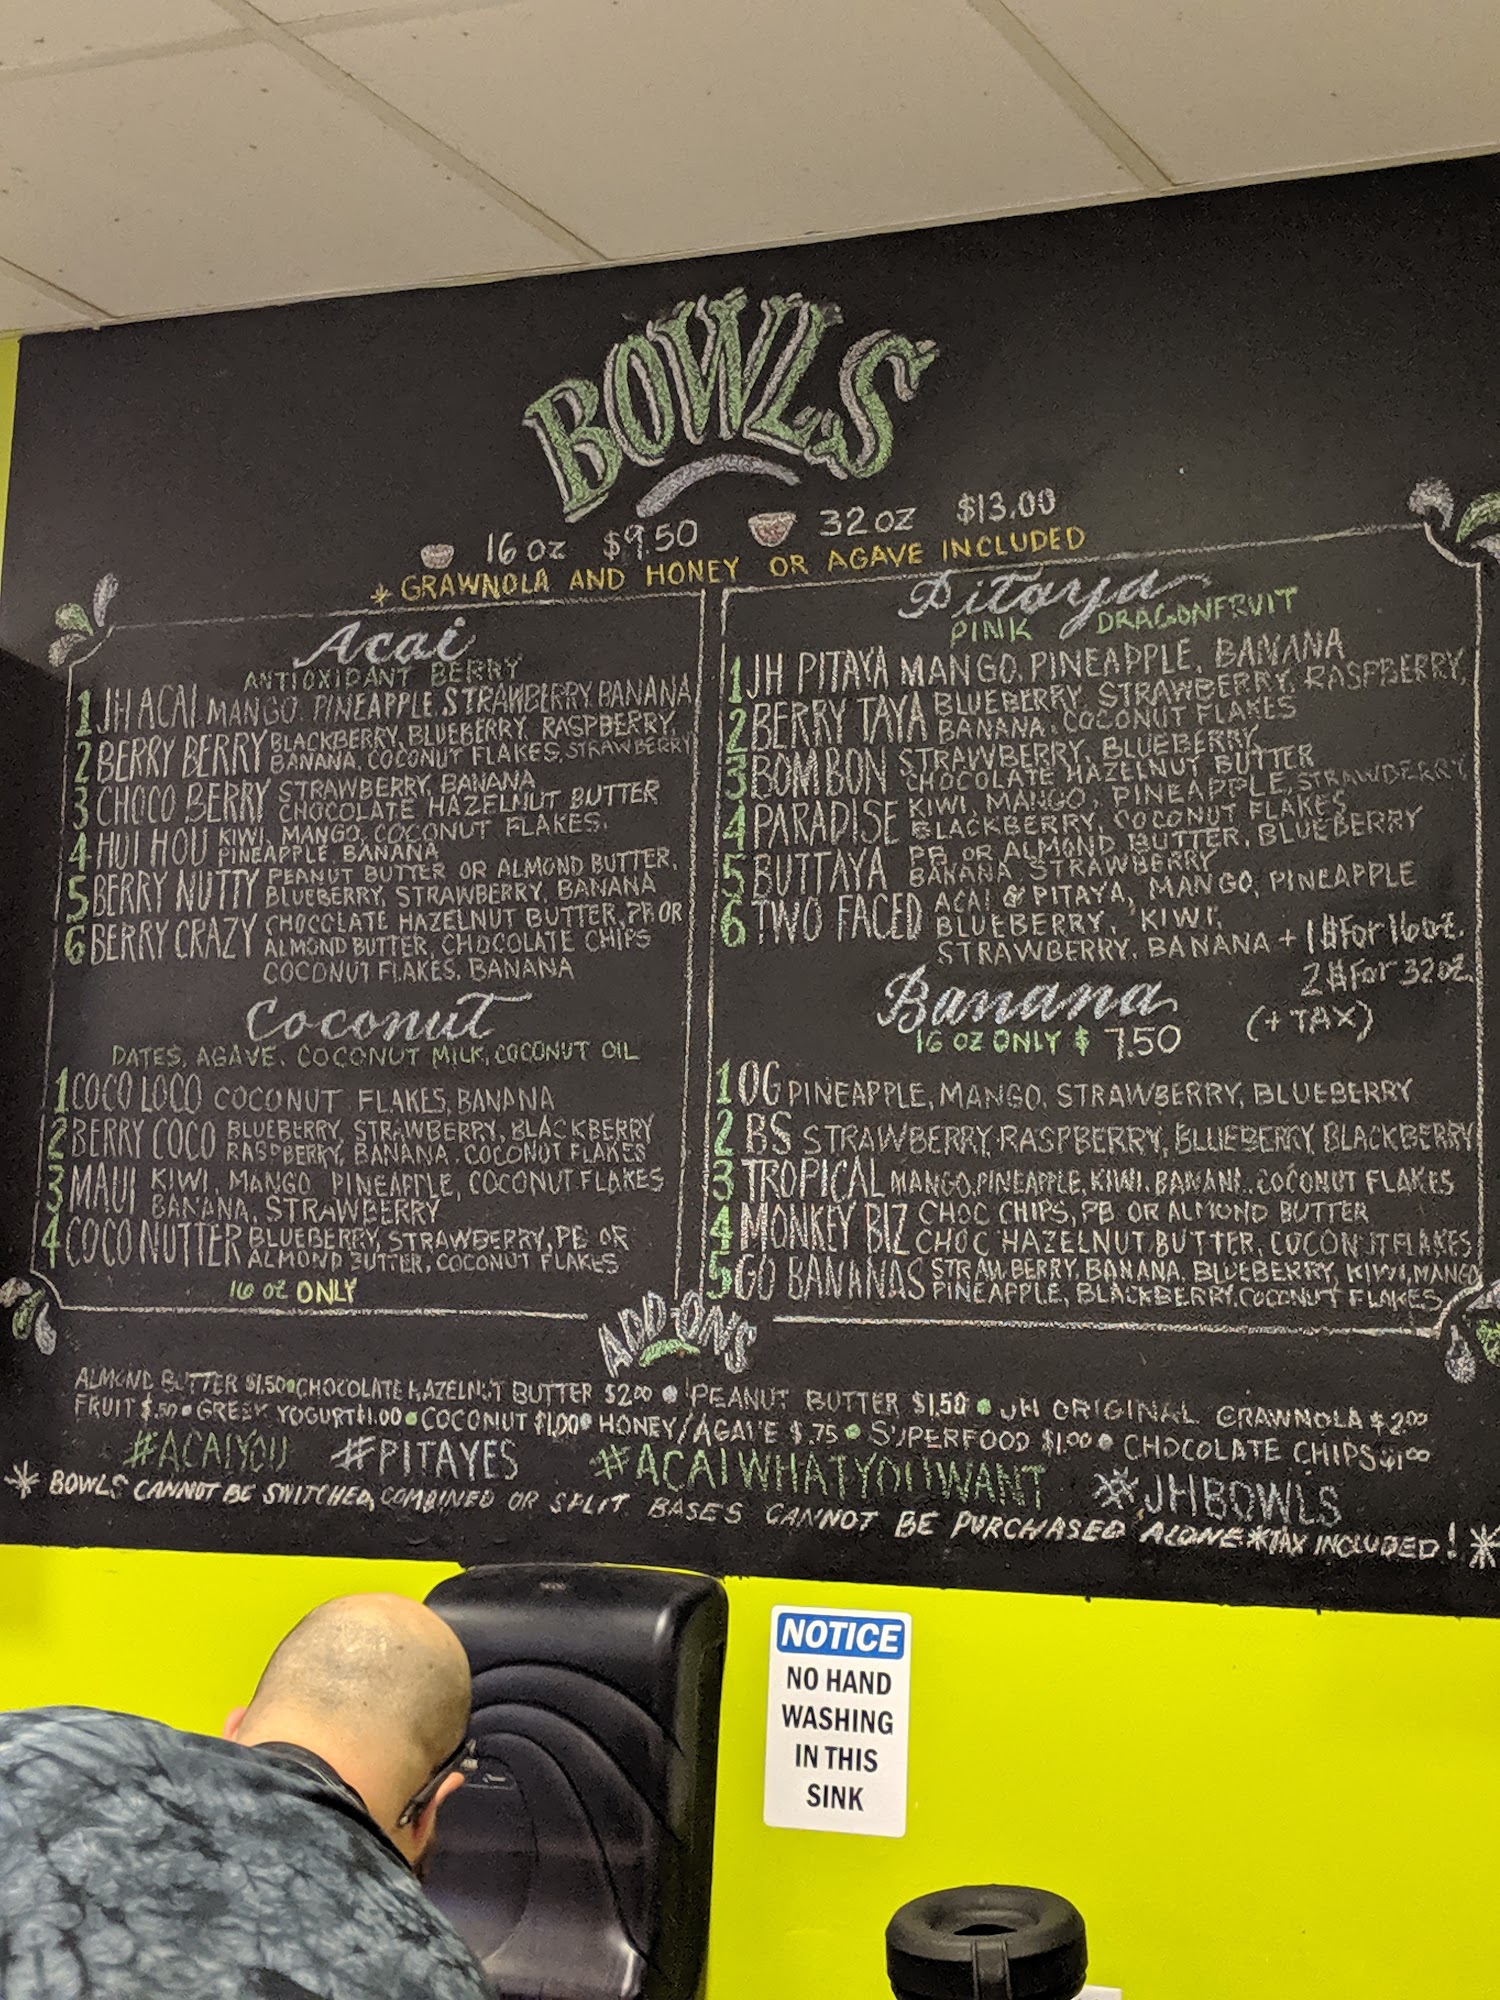 BOWLS
16 oz $9.50 32 oz $13.00
* GRAWNOLA AND HONEY OR AGAVE INCLUDED
Acai
ANTIOXIDANT BERRY
1 JH ACAI MANGO, PINEAPPLE, STRAWBERRY, BANANA
2 BERRY BERRY BLACKBERRY, BLUEBERRY, RASPBERRY,
BANANA, COCONUT FLAKES, STRAWBERRY
3 CHOCO BERRY STRAWBERRY, BANANA
CHOCOLATE HAZELNUT BUTTER
4 HUI HOU KIWI, MANGO, COCONUT FLAKES,
PINEAPPLE, BANANA
5 BERRY NUTTY PEANUT BUTTER OR ALMOND BUTTER,
BLUEBERRY, STRAWBERRY, BANANA
6 BERRY CRAZY CHOCOLATE HAZELNUT BUTTER, PB OR
ALMOND BUTTER, CHOCOLATE CHIPS
COCONUT FLAKES, BANANA
Coconut
DATES, AGAVE, COCONUT MILK, COCONUT OIL
1 COCO LOCO COCONUT FLAKES, BANANA
2 BERRY COCO BLUEBERRY, STRAWBERRY, BLACKBERRY
RASPBERRY, BANANA, COCONUT FLAKES
3 MAUI KIWI, MANGO, PINEAPPLE, COCONUT FLAKES
BANANA, STRAWBERRY
4 COCO NUTTER BLUEBERRY, STRAWBERRY, PB OR
ALMOND BUTTER, COCONUT FLAKES
16 oz ONLY
Pitaya
PINK DRAGONFRUIT
1 JH PITAYA MANGO, PINEAPPLE, BANANA
2 BERRY TAYA BLUEBERRY, STRAWBERRY, RASPBERRY,
BANANA, COCONUT FLAKES
3 BOM BON STRAWBERRY, BLUEBERRY,
CHOCOLATE HAZELNUT BUTTER
4 PARADISE KIWI, MANGO, PINEAPPLE, STRAWBERRY
BLACKBERRY, COCONUT FLAKES
5 BUTTAYA PB OR ALMOND BUTTER, BLUEBERRY
BANANA STRAWBERRY
6 TWO FACED ACAI & PITAYA, MANGO, PINEAPPLE
BLUEBERRY, KIWI,
STRAWBERRY, BANANA + 1$ For 16oz.
2$ For 32oz.
(+ TAX)
Banana
16 OZ ONLY $ 7.50
1 OG PINEAPPLE, MANGO, STRAWBERRY, BLUEBERRY
2 BS STRAWBERRY, RASPBERRY, BLUEBERRY, BLACKBERRY
3 TROPICAL MANGO, PINEAPPLE, KIWI, BANANA, COCONUT FLAKES
4 MONKEY BIZ CHOC CHIPS, PB OR ALMOND BUTTER
CHOC HAZELNUT BUTTER, COCONUT FLAKES
5 GO BANANAS STRAWBERRY, BANANA, BLUEBERRY, KIWI, MANGO
PINEAPPLE, BLACKBERRY, COCONUT FLAKES
ADD-ONS
ALMOND BUTTER $1.50 • CHOCOLATE HAZELNUT BUTTER $2.00 • PEANUT BUTTER $1.50 • JH ORIGINAL GRAWNOLA $2.00
FRUIT $.50 • GREEK YOGURT $1.00 • COCONUT $1.00 • HONEY/AGAVE $.75 • SUPERFOOD $1.00 • CHOCOLATE CHIPS $1.00
#ACAIYOU #PITAYES #ACAIWHATYOUWANT #JHBOWLS
* BOWLS CANNOT BE SWITCHED, COMBINED OR SPLIT BASES CANNOT BE PURCHASED ALONE *TAX INCLUDED! *
NOTICE
NO HAND
WASHING
IN THIS
SINK